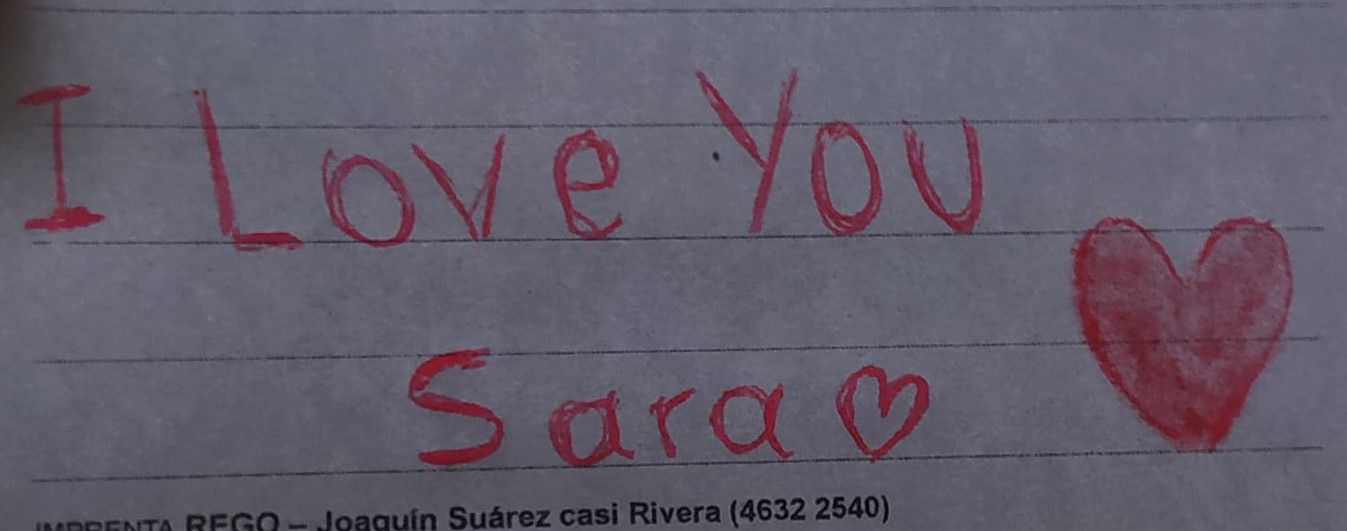 I Love You
Sara ♡
IMPRENTA REGO – Joaquín Suárez casi Rivera (4632 2540)